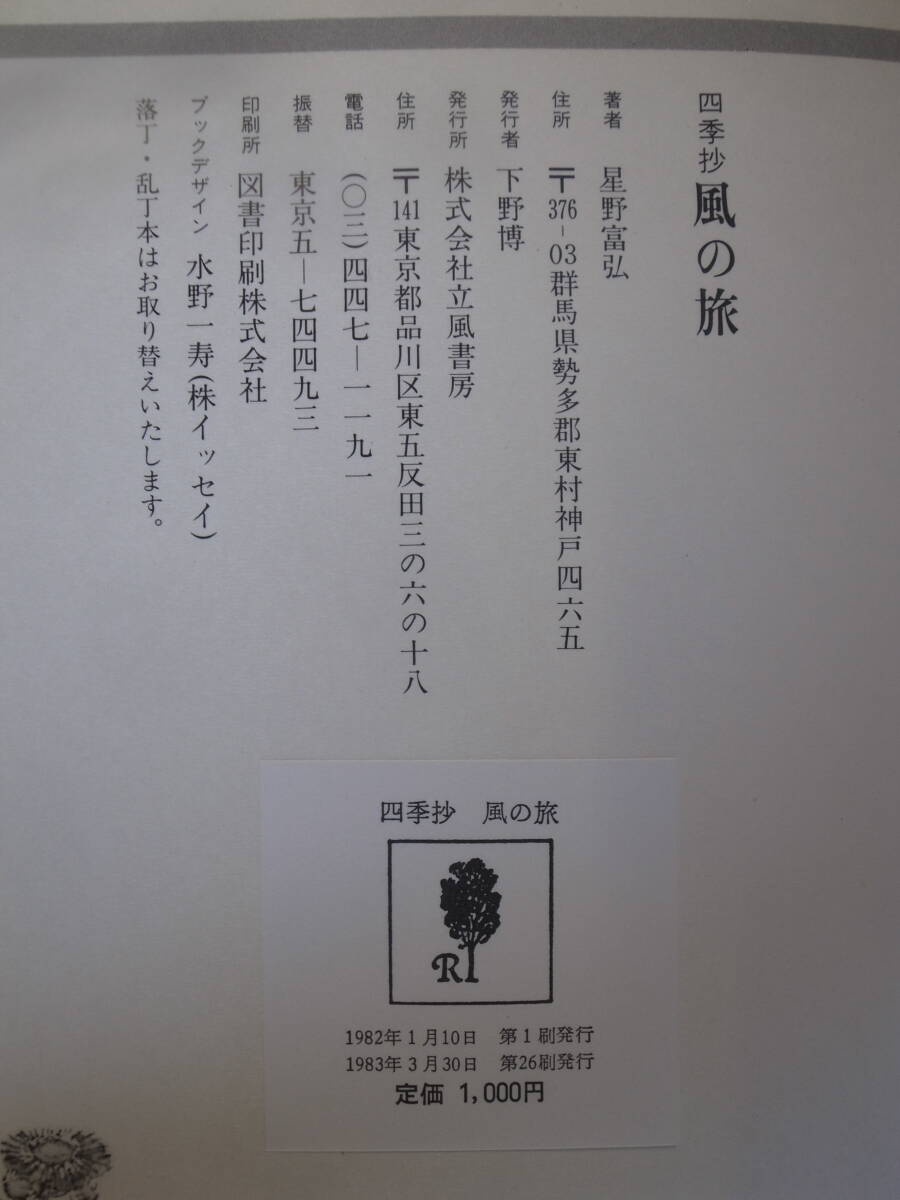 四季抄 風の旅
著者 星野富弘
住所 〒376-03群馬県勢多郡東村神戸四六五
発行者 下野博
発行所 株式会社立風書房
住所 〒141東京都品川区東五反田三の六の十八
電話 (〇三)四四七―一一九一
振替 東京五―七四四九三
印刷所 図書印刷株式会社
ブックデザイン 水野一寿(株イッセイ)
落丁・乱丁本はお取り替えいたします。
四季抄 風の旅
R
1982年1月10日 第1刷発行
1983年3月30日 第26刷発行
定価 1,000円